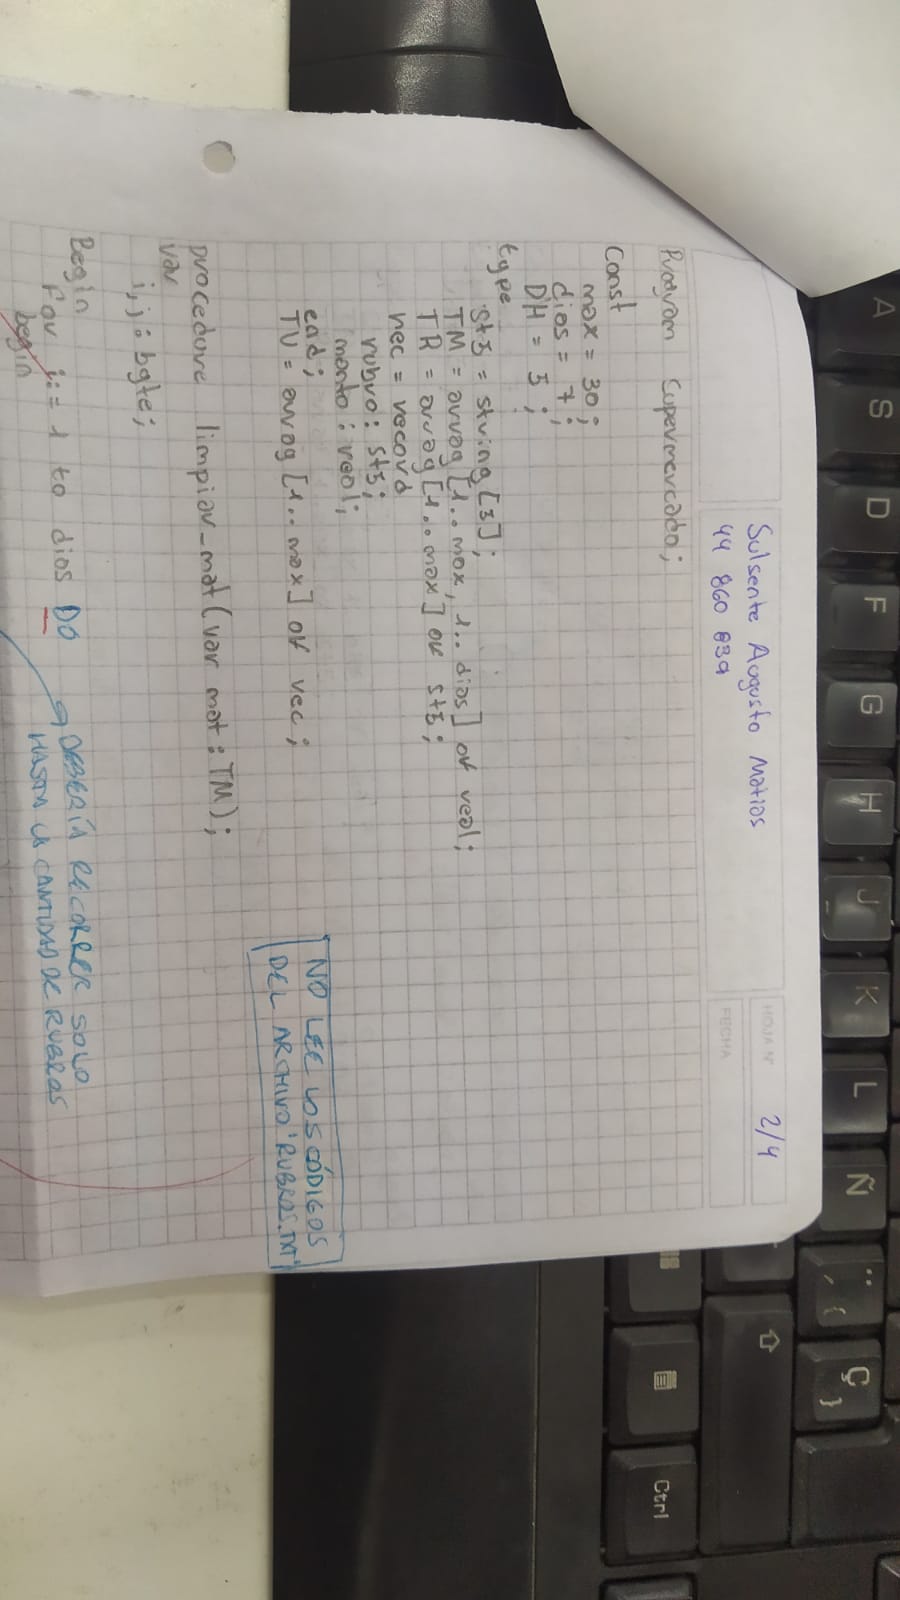 A S D F G H J K L Ñ ¨ ´ { Ç }
Ctrl
Sulsente Augusto Matias
44 860 839
HOJA N° 2/4
FECHA
Program supermercado;
Const
max = 30;
dias = 7;
DH = 5;
type
st5 = string[5];
TM = array[1..max, 1..dias] of real;
TR = array[1..max] of st5;
rec = record
rubro: st5;
monto: real;
end;
TV = array[1..max] of rec;
NO LEE LOS CÓDIGOS
DEL ARCHIVO 'RUBROS.TXT'
procedure limpiar_mat(var mat: TM);
var
i,j: byte;
Begin
For i:= 1 to dias DO
begin
DEBERÍA RECORRER SOLO
HASTA LA CANTIDAD DE RUBROS